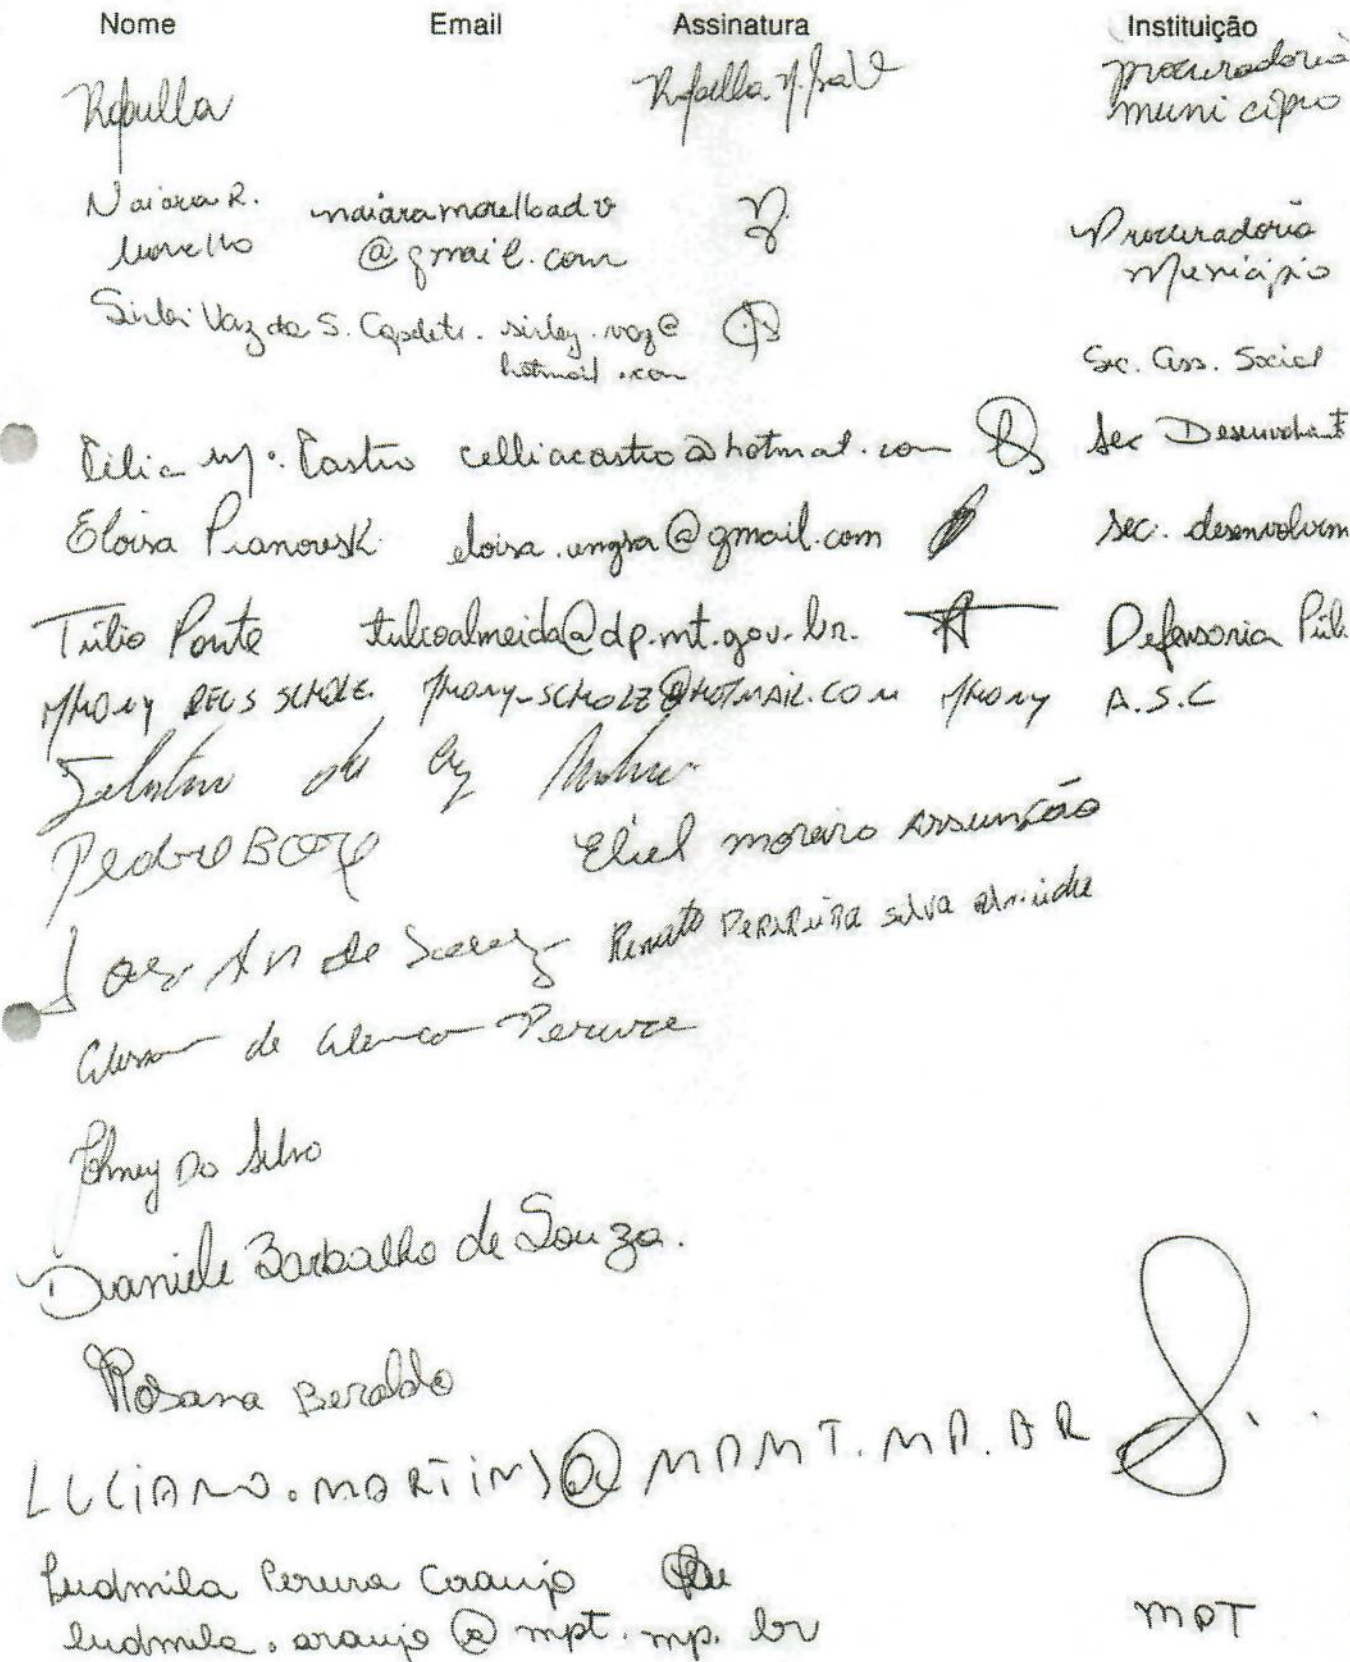 Nome Email Assinatura Instituição
Rafaella procuradoria
município
Naiara R. naiaramorelloadv Procuradoria
Morello @gmail.com Município
Sirlei Vaz da S. sirley.vaz@
hotmail.com Sec. Ass. Social
Célia Mª. Castro celliacastro@hotmal.com Sec
Eloisa Pianovsk eloisa.engsa@gmail.com sec. desenvolvim
Túlio Ponte tulioalmeida@dp.mt.gov.br. Defensoria Púb
JHONY REUS SCHOLZ. JHONY-SCHOLZ@HOTMAIL.COM JHONY A.S.C
Pedro
Eliel moreira Assunção
Renato PeReReiRa silva almeida
de Pereira
Johney Da Silva
Daniele Barbalho de Souza.
Rosana Beraldo
LUCIANO.MARTINS@MPMT.MP.BR
Ludmila Pereira Araujo
ludmila.araujo@mpt.mp.br MPT